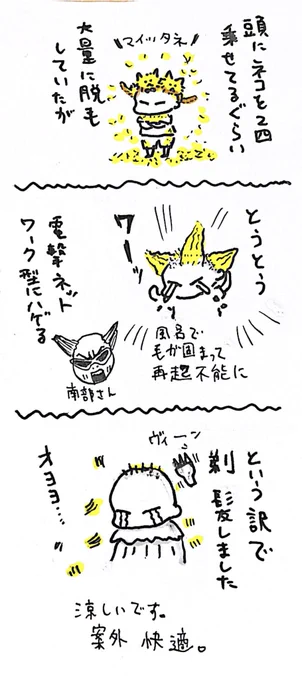 頭にネコを2匹
乗せてるぐらい
\\マイッタネ//
大量に脱毛
していたが
とうとう
ワーッ
風呂で
毛が固まって
再起不能に
電撃ネット
ワーク型にハゲる
南部さん
という訳で
剃髪しました
ヴィーン
オヨヨ…
涼しいです。
案外 快適。